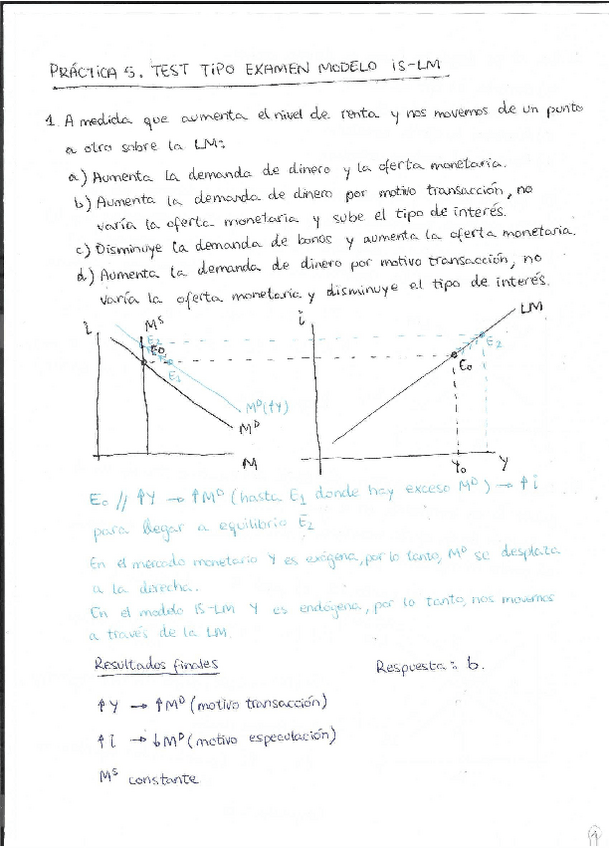 PRÁCTICA 5. TEST TIPO EXAMEN MODELO IS-LM
1. A medida que aumenta el nivel de renta y nos movemos de un punto
a otro sobre la LM:
a) Aumenta la demanda de dinero y la oferta monetaria.
b) Aumenta la demanda de dinero por motivo transacción, no
varía la oferta monetaria y sube el tipo de interés.
c) Disminuye la demanda de bonos y aumenta la oferta monetaria.
d) Aumenta la demanda de dinero por motivo transacción, no
varía la oferta monetaria y disminuye el tipo de interés.
i
M^S
E2
E0
E1
M^D(↑Y)
M^D
M
i
LM
E2
E0
Y0
Y
E0 // ↑Y → ↑M^D (hasta E1 donde hay exceso M^D) → ↑i
para llegar a equilibrio E2
En el mercado monetario Y es exógena, por lo tanto, M^D se desplaza
a la derecha.
En el modelo IS-LM Y es endógena, por lo tanto, nos movemos
a través de la LM.
Resultados finales
Respuesta: b.
↑Y → ↑M^D (motivo transacción)
↑i → ↓M^D (motivo especulación)
M^S constante
1